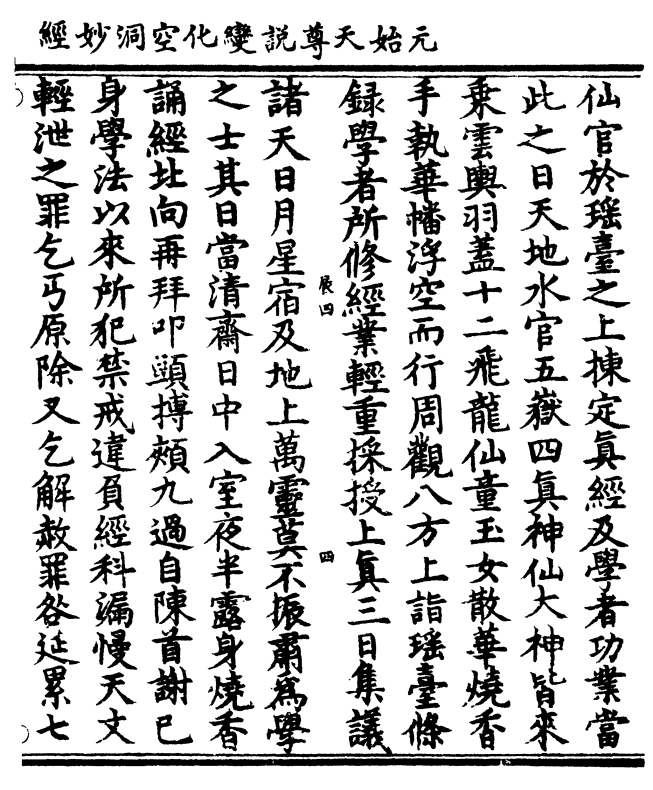 元始天尊說變化空洞妙經
仙官於瑤臺之上揀定眞經及學者功業當
此之日天地水官五嶽四眞神仙大神皆來
乘雲輿羽蓋十二飛龍仙童玉女散華燒香
手執華幡浮空而行周觀八方上詣瑤臺條
録學者所修經業輕重採授上眞三日集議
展四
四
諸天日月星宿及地上萬靈莫不振肅爲學
之士其日當清齋日中入室夜半露身燒香
誦經北向再拜叩頭搏頰九過自陳首謝已
身學法以來所犯禁戒違負經科漏慢天文
輕泄之罪乞丐原除又乞解赦罪咎延累七